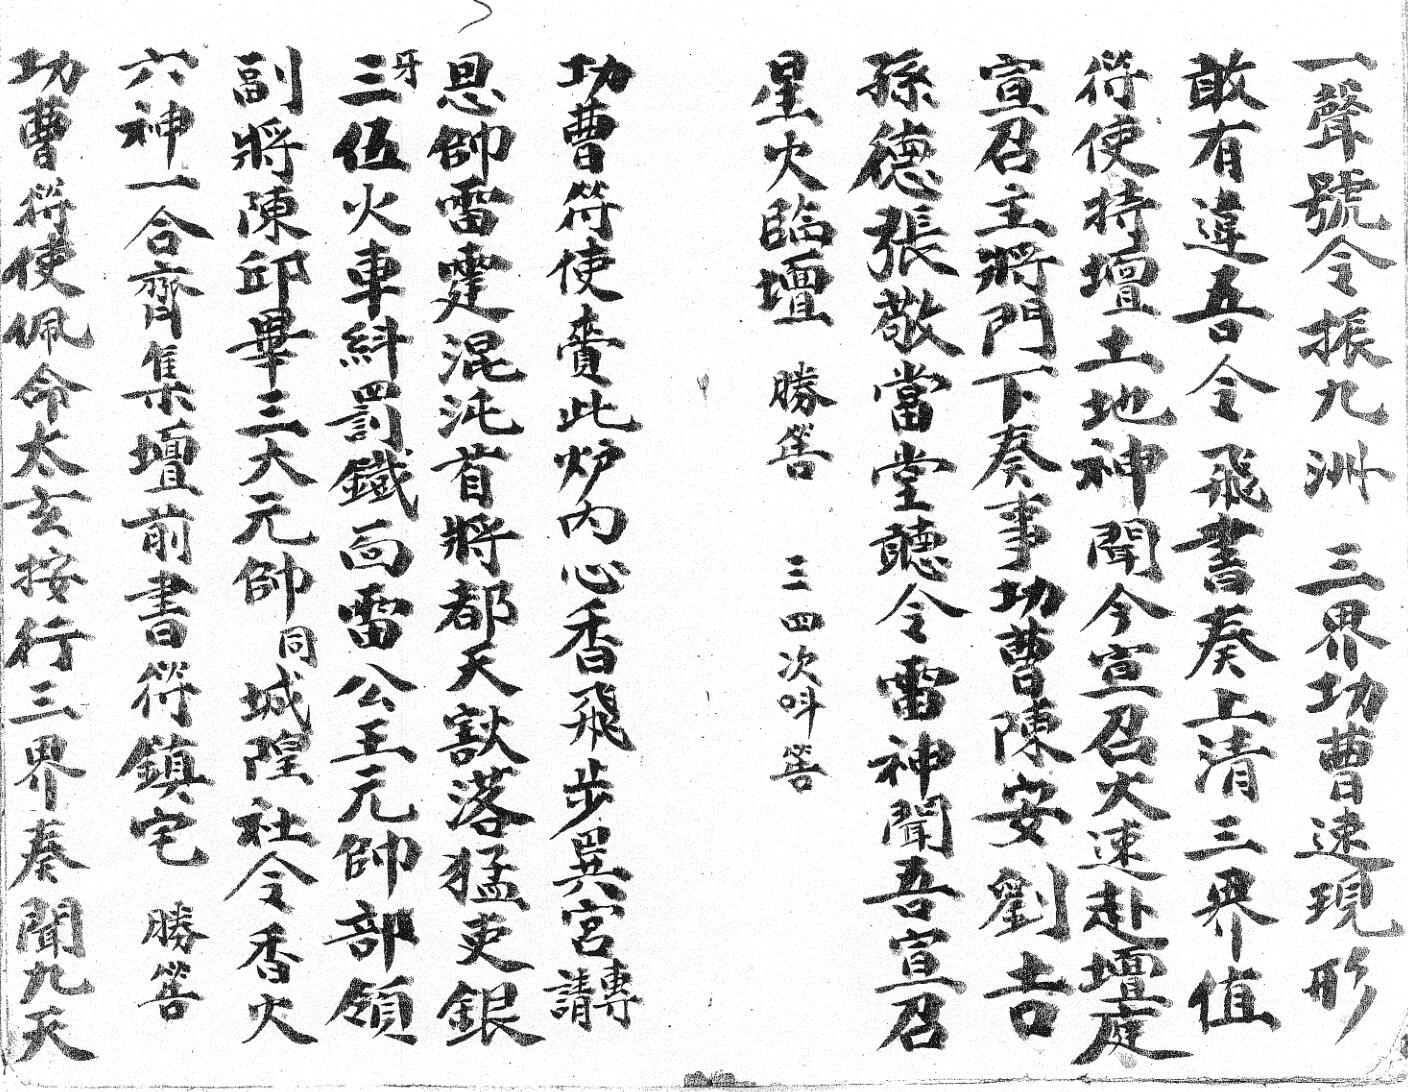 一聲號令振九洲　三界功曹速現形
敢有違吾令　飛書奏上清三界值
符使持壇土地神聞今宣召火速赴壇庭
宣召主將門下奏事功曹陳安劉吉
孫德張敬當堂聽令雷神聞吾宣召
星火臨壇　勝筶　三四次呌筶
功曹符使賫此炉內心香飛步巽宮專請
恩帥雷霆混沌首將都天猷落猛吏銀
牙三伍火車糾罰鐵面雷公王元帥部領
副將陳邱畢三大元帥同城隍社令香火
六神一合齊集壇前書符鎮宅　勝筶
功曹符使佩命太玄按行三界奏聞九天